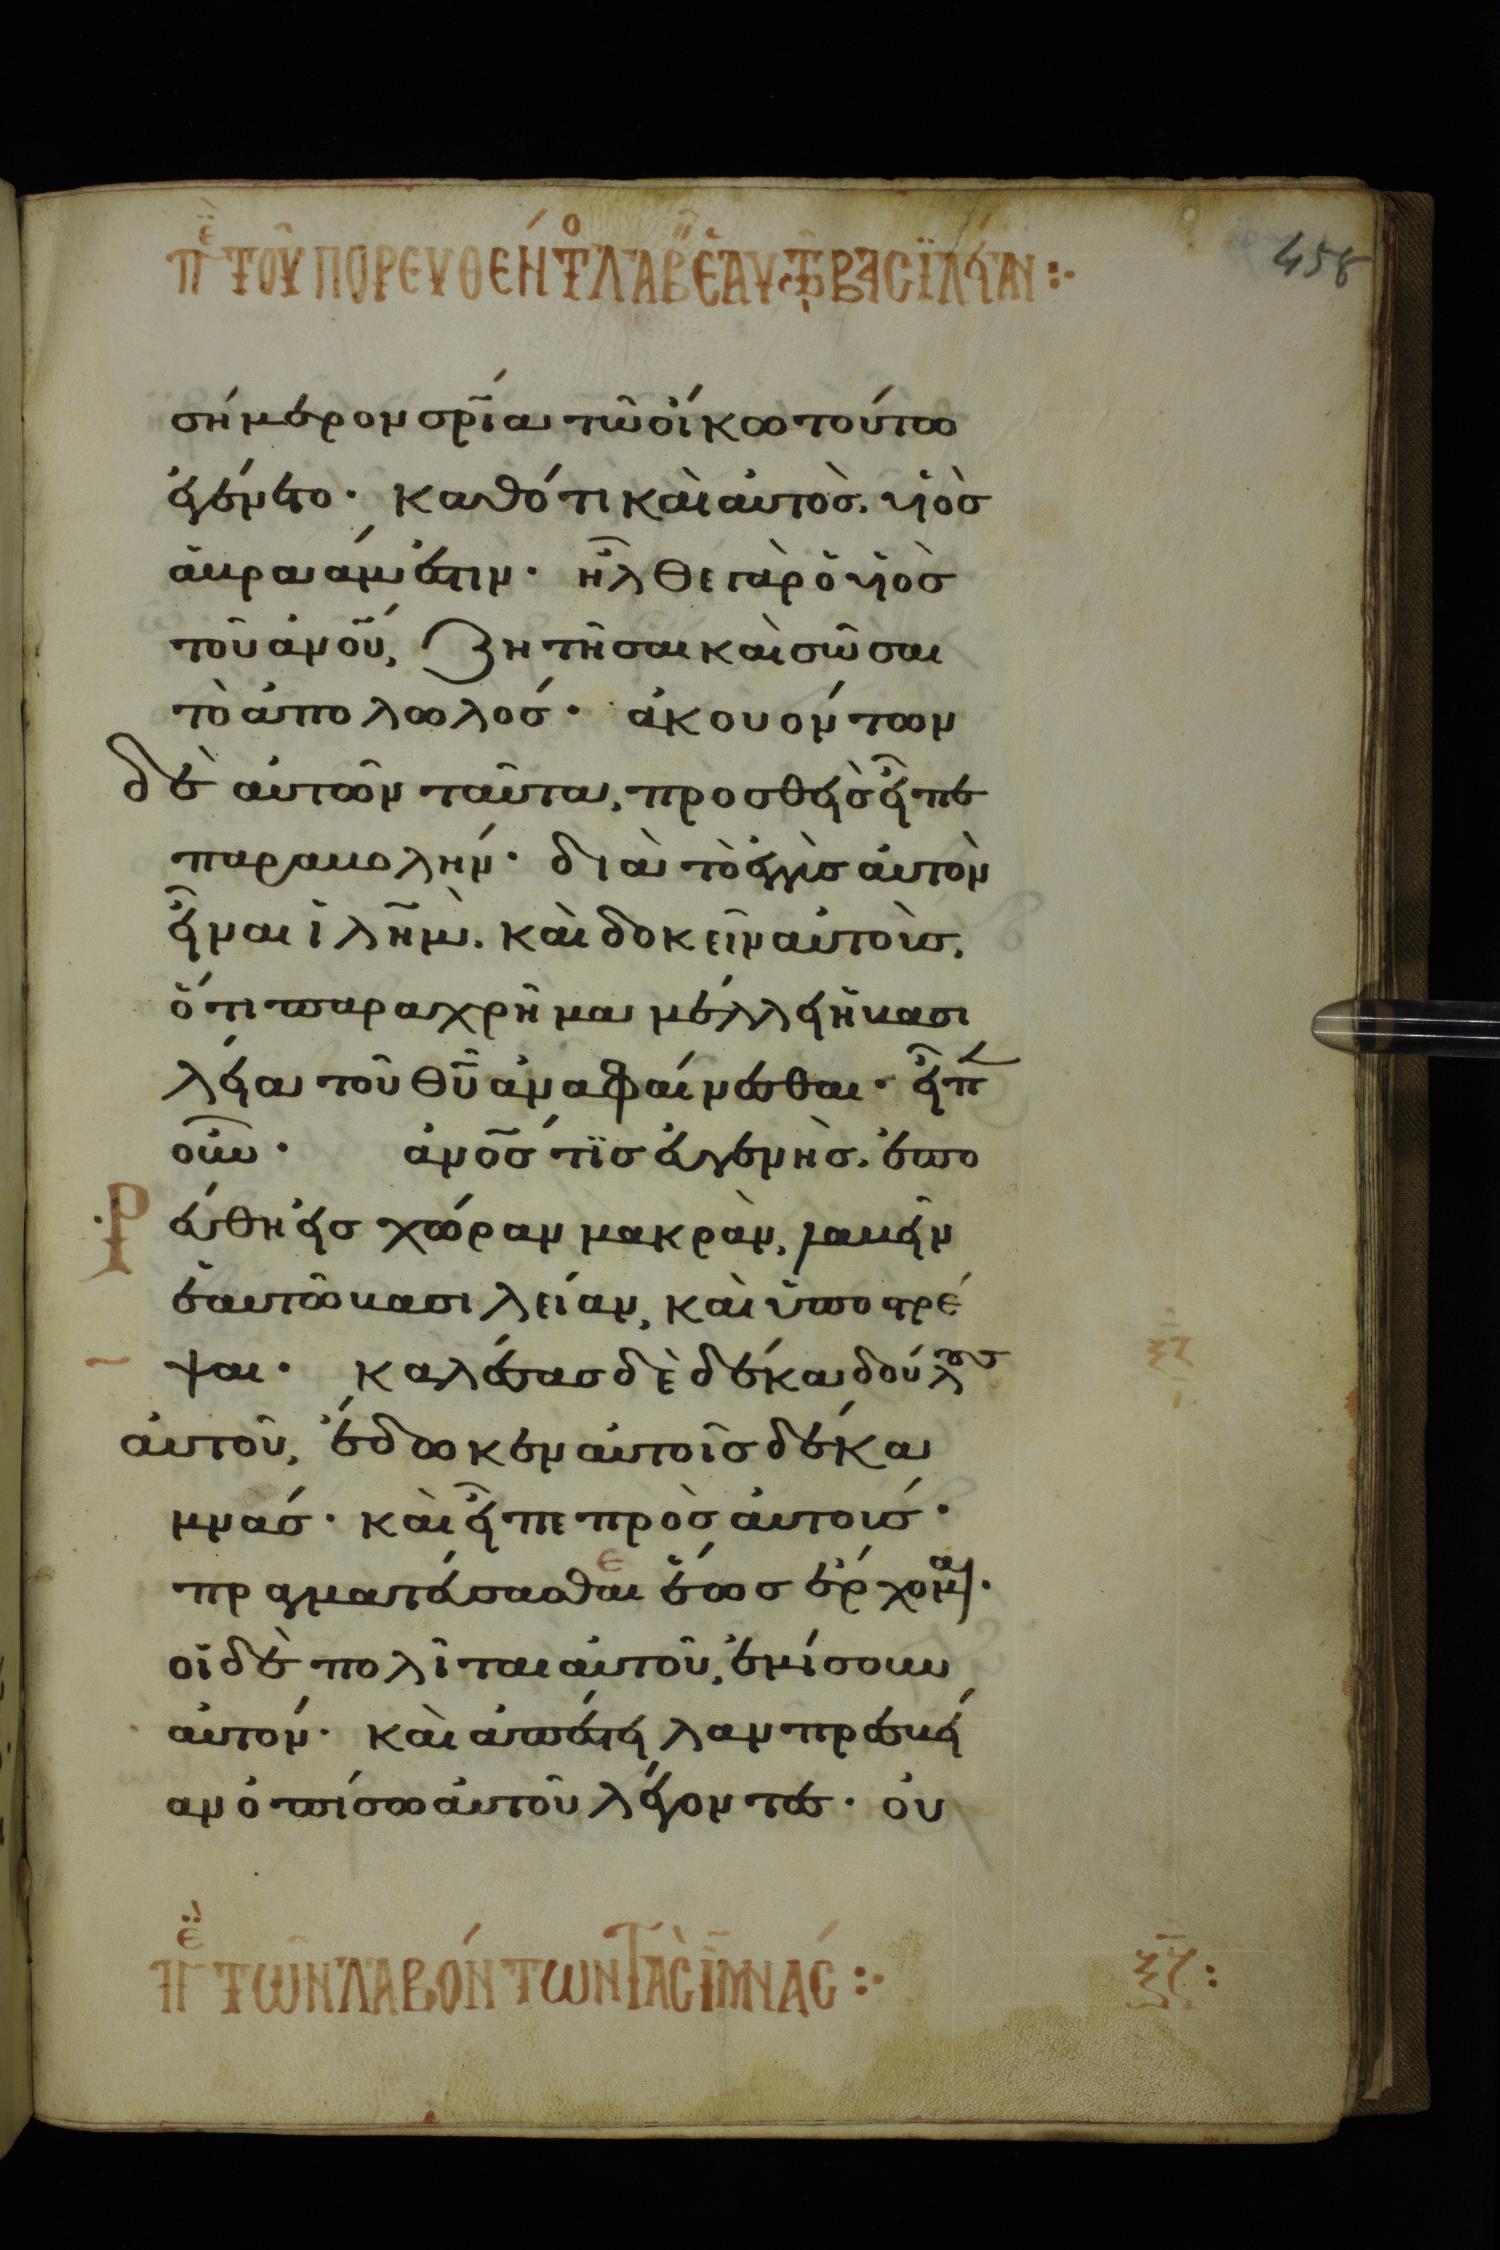 πε̈ τοῦ πορευθέντο λαβεῖν ἑαυτῷ βασιλείαν :·
458
σήμερον σρία τῶ οἴκω τούτω
ἐγένετο · καθότι καὶ αὐτὸς, υἱὸς
ἀβραάμ ἐστιν · ἦλθε γὰρ ὁ υἱὸς
τοῦ ἀνου, ζητῆσαι καὶ σῶσαι
τὸ ἀπολωλός · ἀκουόντων
δὲ αὐτῶν ταῦτα, προσθεὶς εἶπε
παραβολήν · διὰ τὸ ἐγγὺς αὐτὸν
εἶναι ἱλημ, καὶ δοκεῖν αὐτοὺς,
ὅτι παραχρῆμα μέλλει ἡ βασι
λεία τοῦ θυ ἀναφαίνεσθαι · εἶπ
οὖν · ἀνος τὶς εὐγενὴς, ἐπο
ρεύθη εἰς χώραν μακρὰν, λαβεῖν
ἑαυτῶ βασιλείαν, καὶ ὑποστρέ
ψαι · καλέσας δὲ δέκα δούλους
ξζ
αὐτοῦ, ἔδωκεν αὐτοῖς δέκα
μνάς · καὶ εἶπε πρὸς αὐτούς ·
πραγματεύσασθαι ἕως ἔρχομαι ·
ε
οἱ δὲ πολῖται αὐτοῦ, ἐμίσουν
αὐτόν · καὶ ἀπέστειλαν πρεσβεί
αν ὀπίσω αὐτοῦ λέγοντες · οὐ
πε̈ τῶν λαβόντων τὰς ι μνάς :· ξζ :